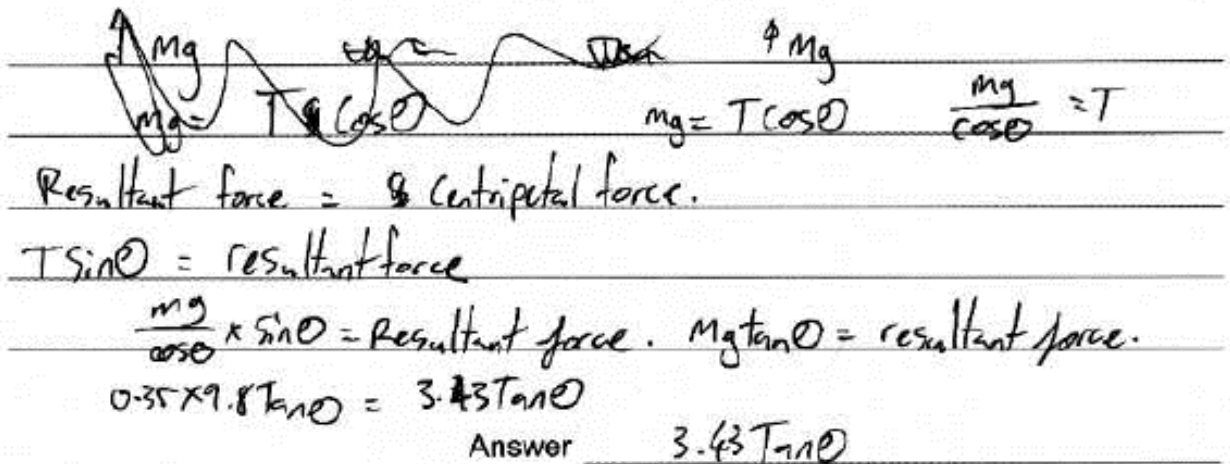 Mg ↑ Mg
mg = T Cosθ mg = T Cosθ mg/cosθ = T
Resultant force = Centripetal force.
T Sinθ = resultant force
mg/cosθ × Sinθ = Resultant force. Mg tanθ = resultant force.
0.35 × 9.8 Tanθ = 3.43 Tanθ
Answer 3.43 Tanθ